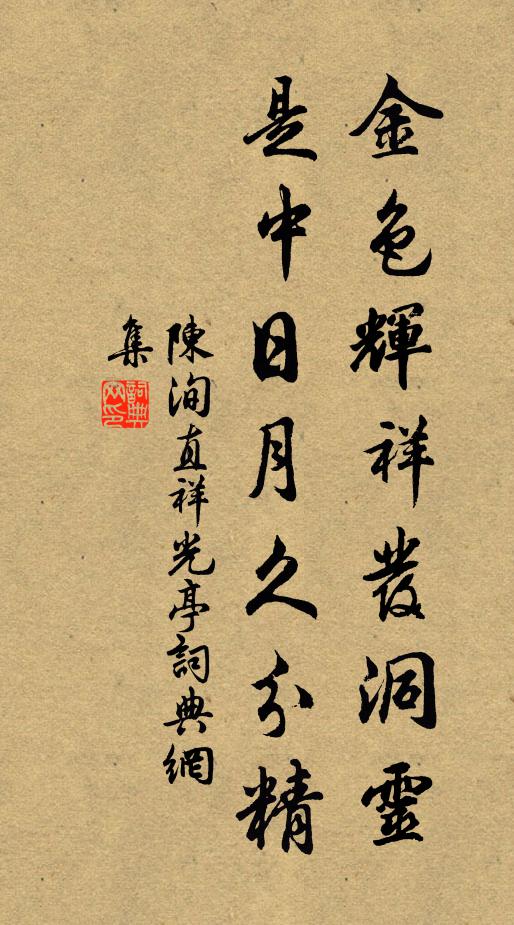 金色輝祥發洞靈
是中日月久分精
陳洵直祥光亭詞典網
集
詞典網印